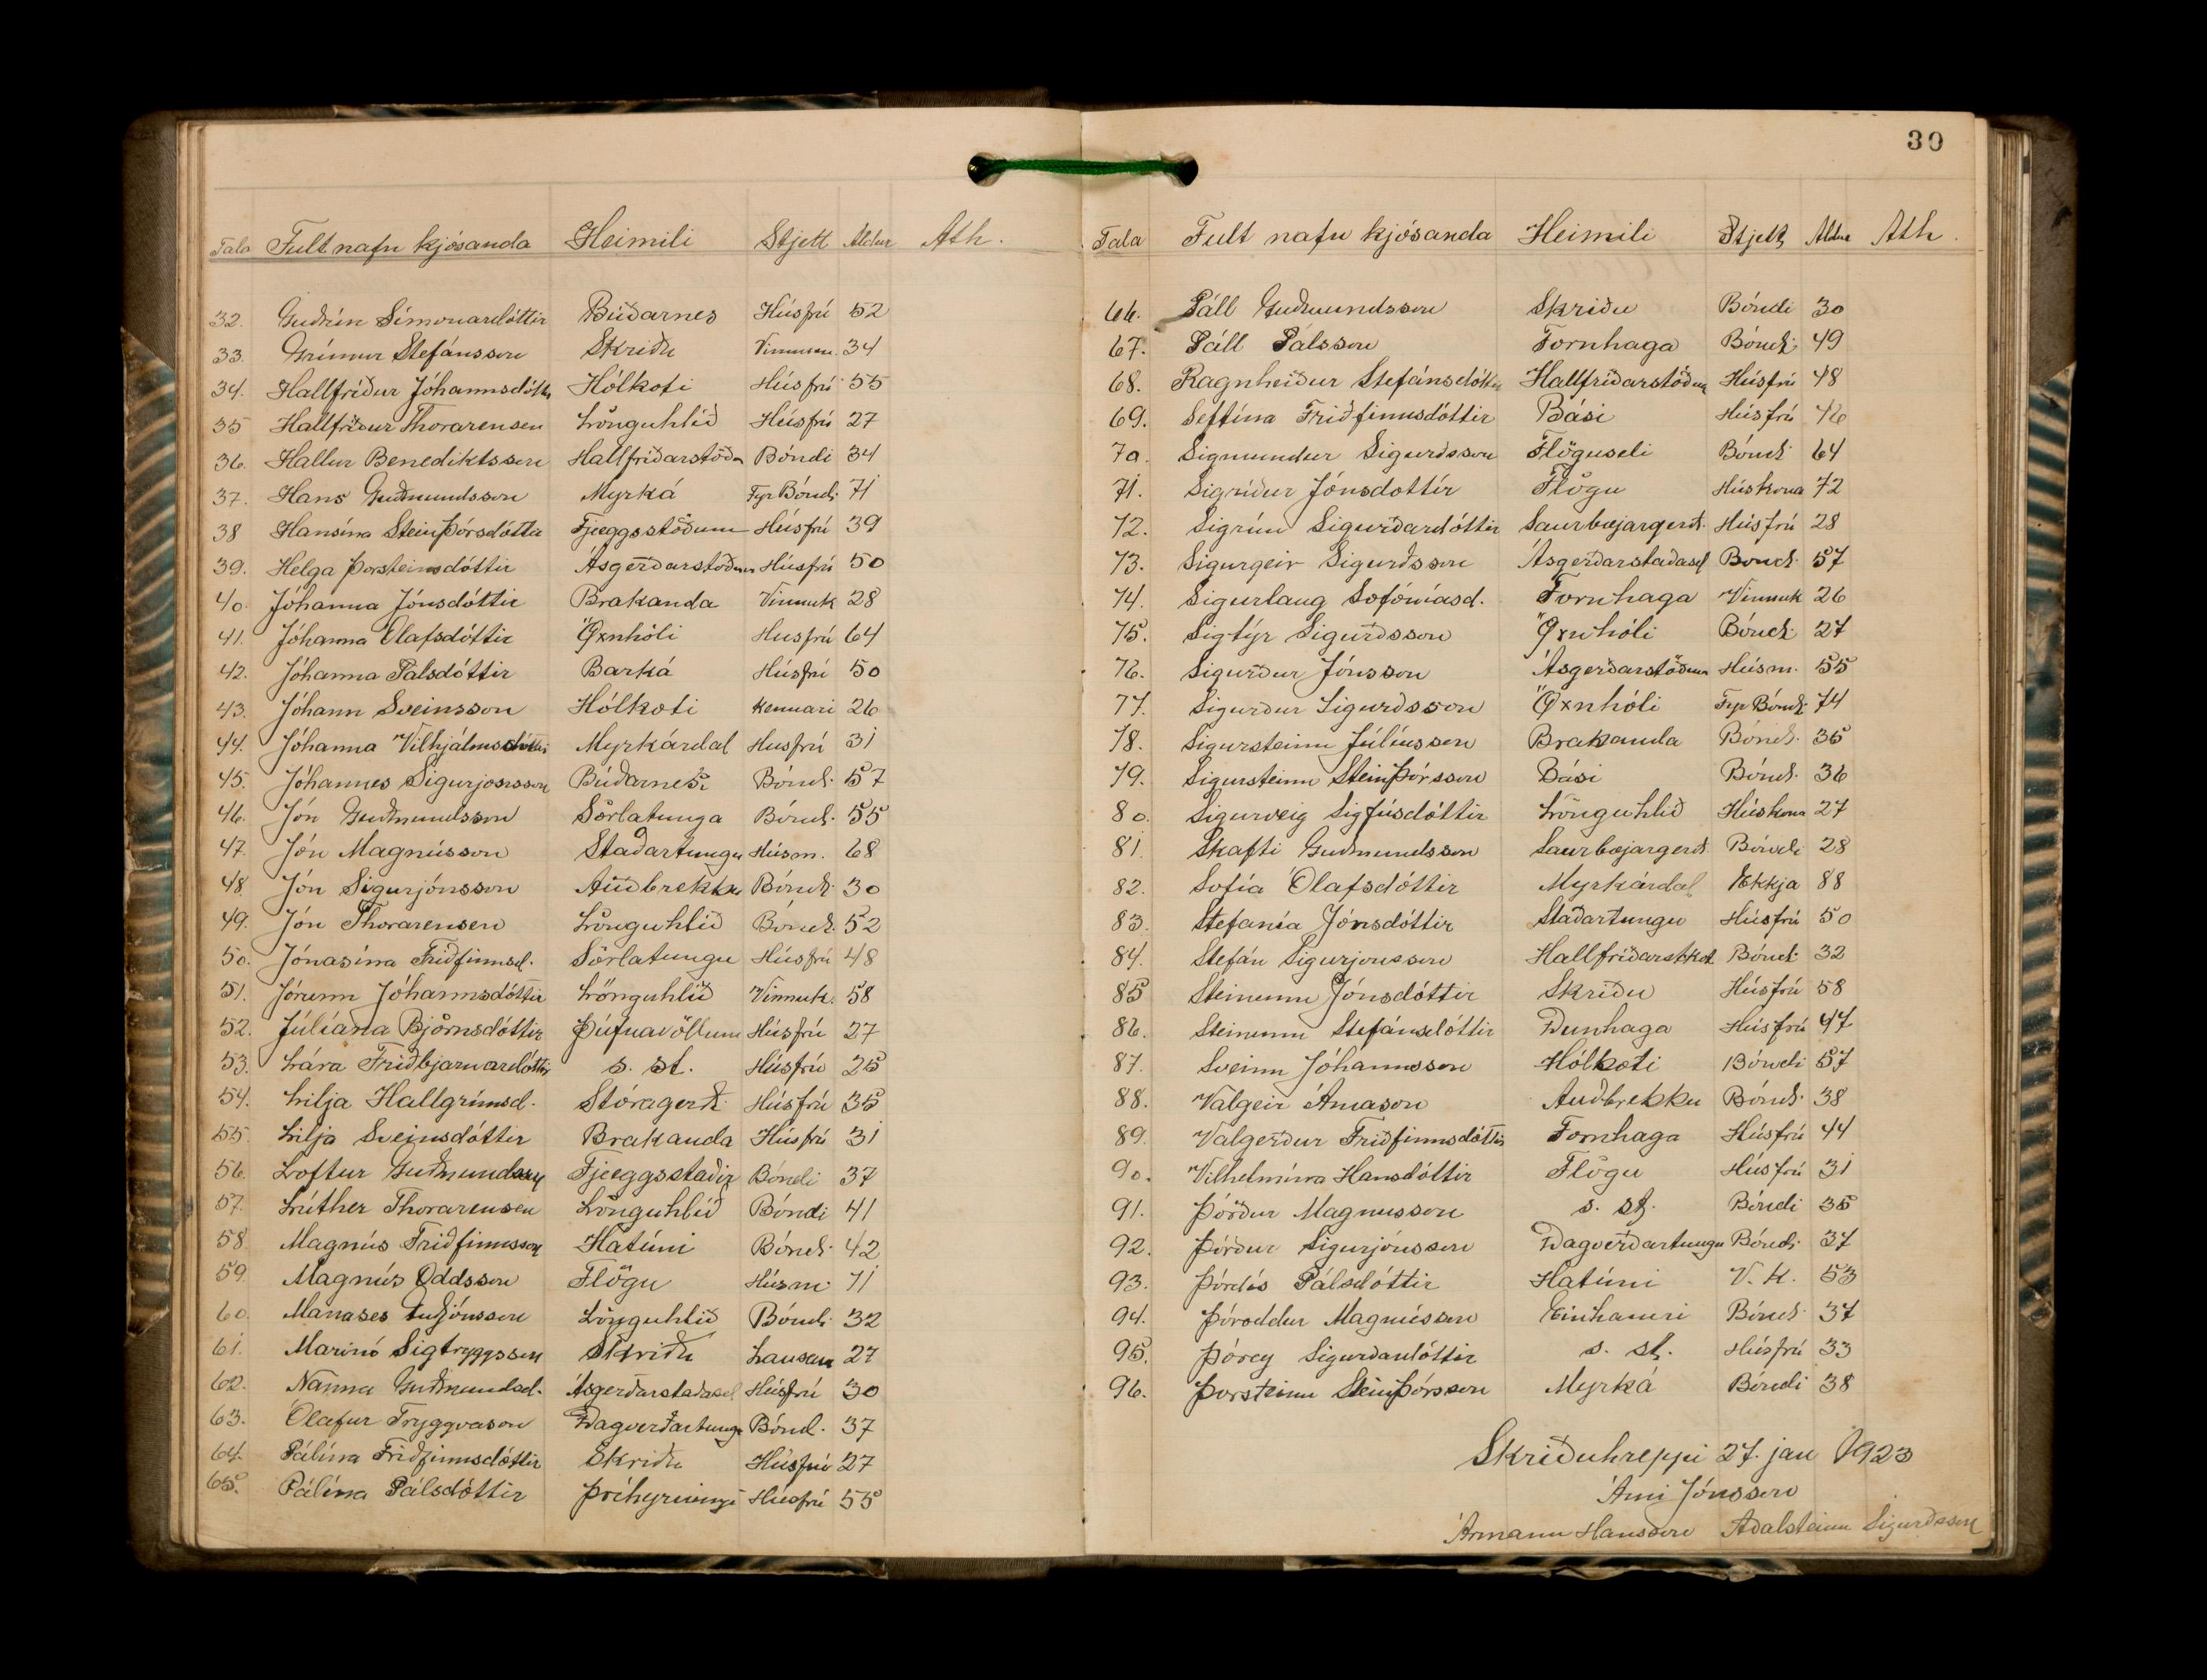 30
Tala Fult nafn kjósanda Heimili Stjett Aldur Ath.
32. Guðrún Símonardóttir Búðarnes Húsfrú 52
33. Grímur Stefánsson Skriðu Vinnum. 34
34. Hallfríður Jóhannsdóttir Hólkoti Húsfrú 55
35 Hallfríður Thorarensen Lönguhlíð Húsfrú 27
36. Hallur Benediktsson Hallfríðarstöðu Bóndi 34
37. Hans Guðmundsson Myrká Fyr Bóndi 71
38 Hansína Steinþórsdóttir Fjeeggsstöðum Húsfrú 39
39. Helga Þorsteinsdóttir Ásgerðarstöðum Húsfrú 50
40. Jóhanna Jónsdóttir Brakanda Vinnuk 28
41. Jóhanna Ólafsdóttir Öxnhóli Husfrú 64
42. Jóhanna Pálsdóttir Barká Húsfrú 50
43. Jóhann Sveinsson Hólkoti Kennari 26
44. Jóhanna Vilhjálmsdóttir Myrkárdal Husfrú 31
45. Jóhannes Sigurjonsson Búðarnesi Bóndi 57
46. Jón Guðmundsson Sörlatunga Bóndi 55
47. Jón Magnússon Staðartungu Húsm. 68
48. Jón Sigurjónsson Auðbrekku Bóndi 30
49. Jón Thorarensen Lönguhlíð Bóndi 52
50. Jónasína Friðfinnsd. Sörlatungu Húsfrú 48
51. Jórunn Jóhannsdóttir Lönguhlíð Vinnuk. 58
52. Júlíana Björnsdóttir Þúfnavöllum Húsfrú 27
53. Lára Friðbjarnardóttir s. st. Húsfrú 25
54. Lilja Hallgrímsd. Stóragerði Húsfrú 35
55. Lilja Sveinsdóttir Brakanda Húsfrú 31
56. Loftur Guðmundsson Fjeeggsstaðir Bóndi 37
57. Lúther Thorarensen Lönguhlíð Bóndi 41
58 Magnús Friðfinnsson Hatúni Bóndi 42
59. Magnús Oddsson Flögu Húsm. 71
60. Manases Guðjónsson Lönguhlíð Bóndi 32
61. Marinó Sigtryggsson Skriðu Lausam 27
62. Nanna Guðmundsd. Ásgerðarstaðasel Húsfrú 30
63. Ólafur Tryggvason Dagverðartungu Bónd. 37
64. Pálína Friðfinnsdóttir Skriðu Húsfrú 27
65. Pálína Pálsdóttir Þríhyrningi Húsfrú 55
Tala Fult nafn kjósanda Heimili Stjett Aldur Ath.
66. Páll Guðmundsson Skriðu Bóndi 30
67. Páll Pálsson Fornhaga Bóndi 49
68. Ragnheiður Stefánsdóttir Hallfríðarstöðum Húsfrú 48
69. Septína Friðfinnsdóttir Bási Húsfrú 46
70. Sigmundur Sigurðsson Flöguseli Bóndi 64
71. Sigríður Jónsdottir Flögu Húskona 72
72. Sigrún Sigurðardóttir Saurbæjargerði Húsfrú 28
73. Sigurgeir Sigurðsson Ásgerðarstaðasel Bondi 57
74. Sigurlaug Sofóníasd. Fornhaga Vinnuk 26
75. Sigtýr Sigurðsson Öxnhóli Bóndi 27
76. Sigurður Jónsson Ásgerðarstöðum Húsm. 55
77. Sigurður Sigurðsson Öxnhóli Fyr Bóndi 74
78. Sigursteinn Júlíusson Brakanda Bóndi 35
79. Sigursteinn Steinþórsson Bási Bóndi 36
80. Sigurveig Sigfúsdóttir Lönguhlíð Húskona 27
81. Skafti Guðmundsson Saurbæjargerði Bóndi 28
82. Sofía Ólafsdóttir Myrkárdal Ekkja 88
83. Stefanía Jónsdóttir Staðartungu Húsfrú 50
84. Stefán Sigurjonsson Hallfríðarstkot Bóndi 32
85 Steinunn Jónsdóttir Skriðu Húsfrú 58
86. Steinunn Stefánsdóttir Dunhaga Húsfrú 47
87. Sveinn Jóhannsson Hólkoti Bóndi 57
88. Valgeir Árnason Auðbrekku Bóndi 38
89. Valgerður Friðfinnsdóttir Fornhaga Húsfrú 44
90. Vilhelmína Hansdóttir Flögu Húsfrú 31
91. Þórður Magnusson s. st. Bóndi 35
92. Þórður Sigurjónsson Dagverðartungu Bóndi 37
93. Þórdís Pálsdóttir Hatúni V. K. 53
94. Þóroddur Magnússon Einhamri Bóndi 37
95. Þórey Sigurðardóttir s. st. Húsfrú 33
96. Þorsteinn Steinþórsson Myrká Bóndi 38
Skriðuhreppi 27. jan 1923
Árni Jónsson
Ármann Hansson Aðalsteinn Sigurðsson